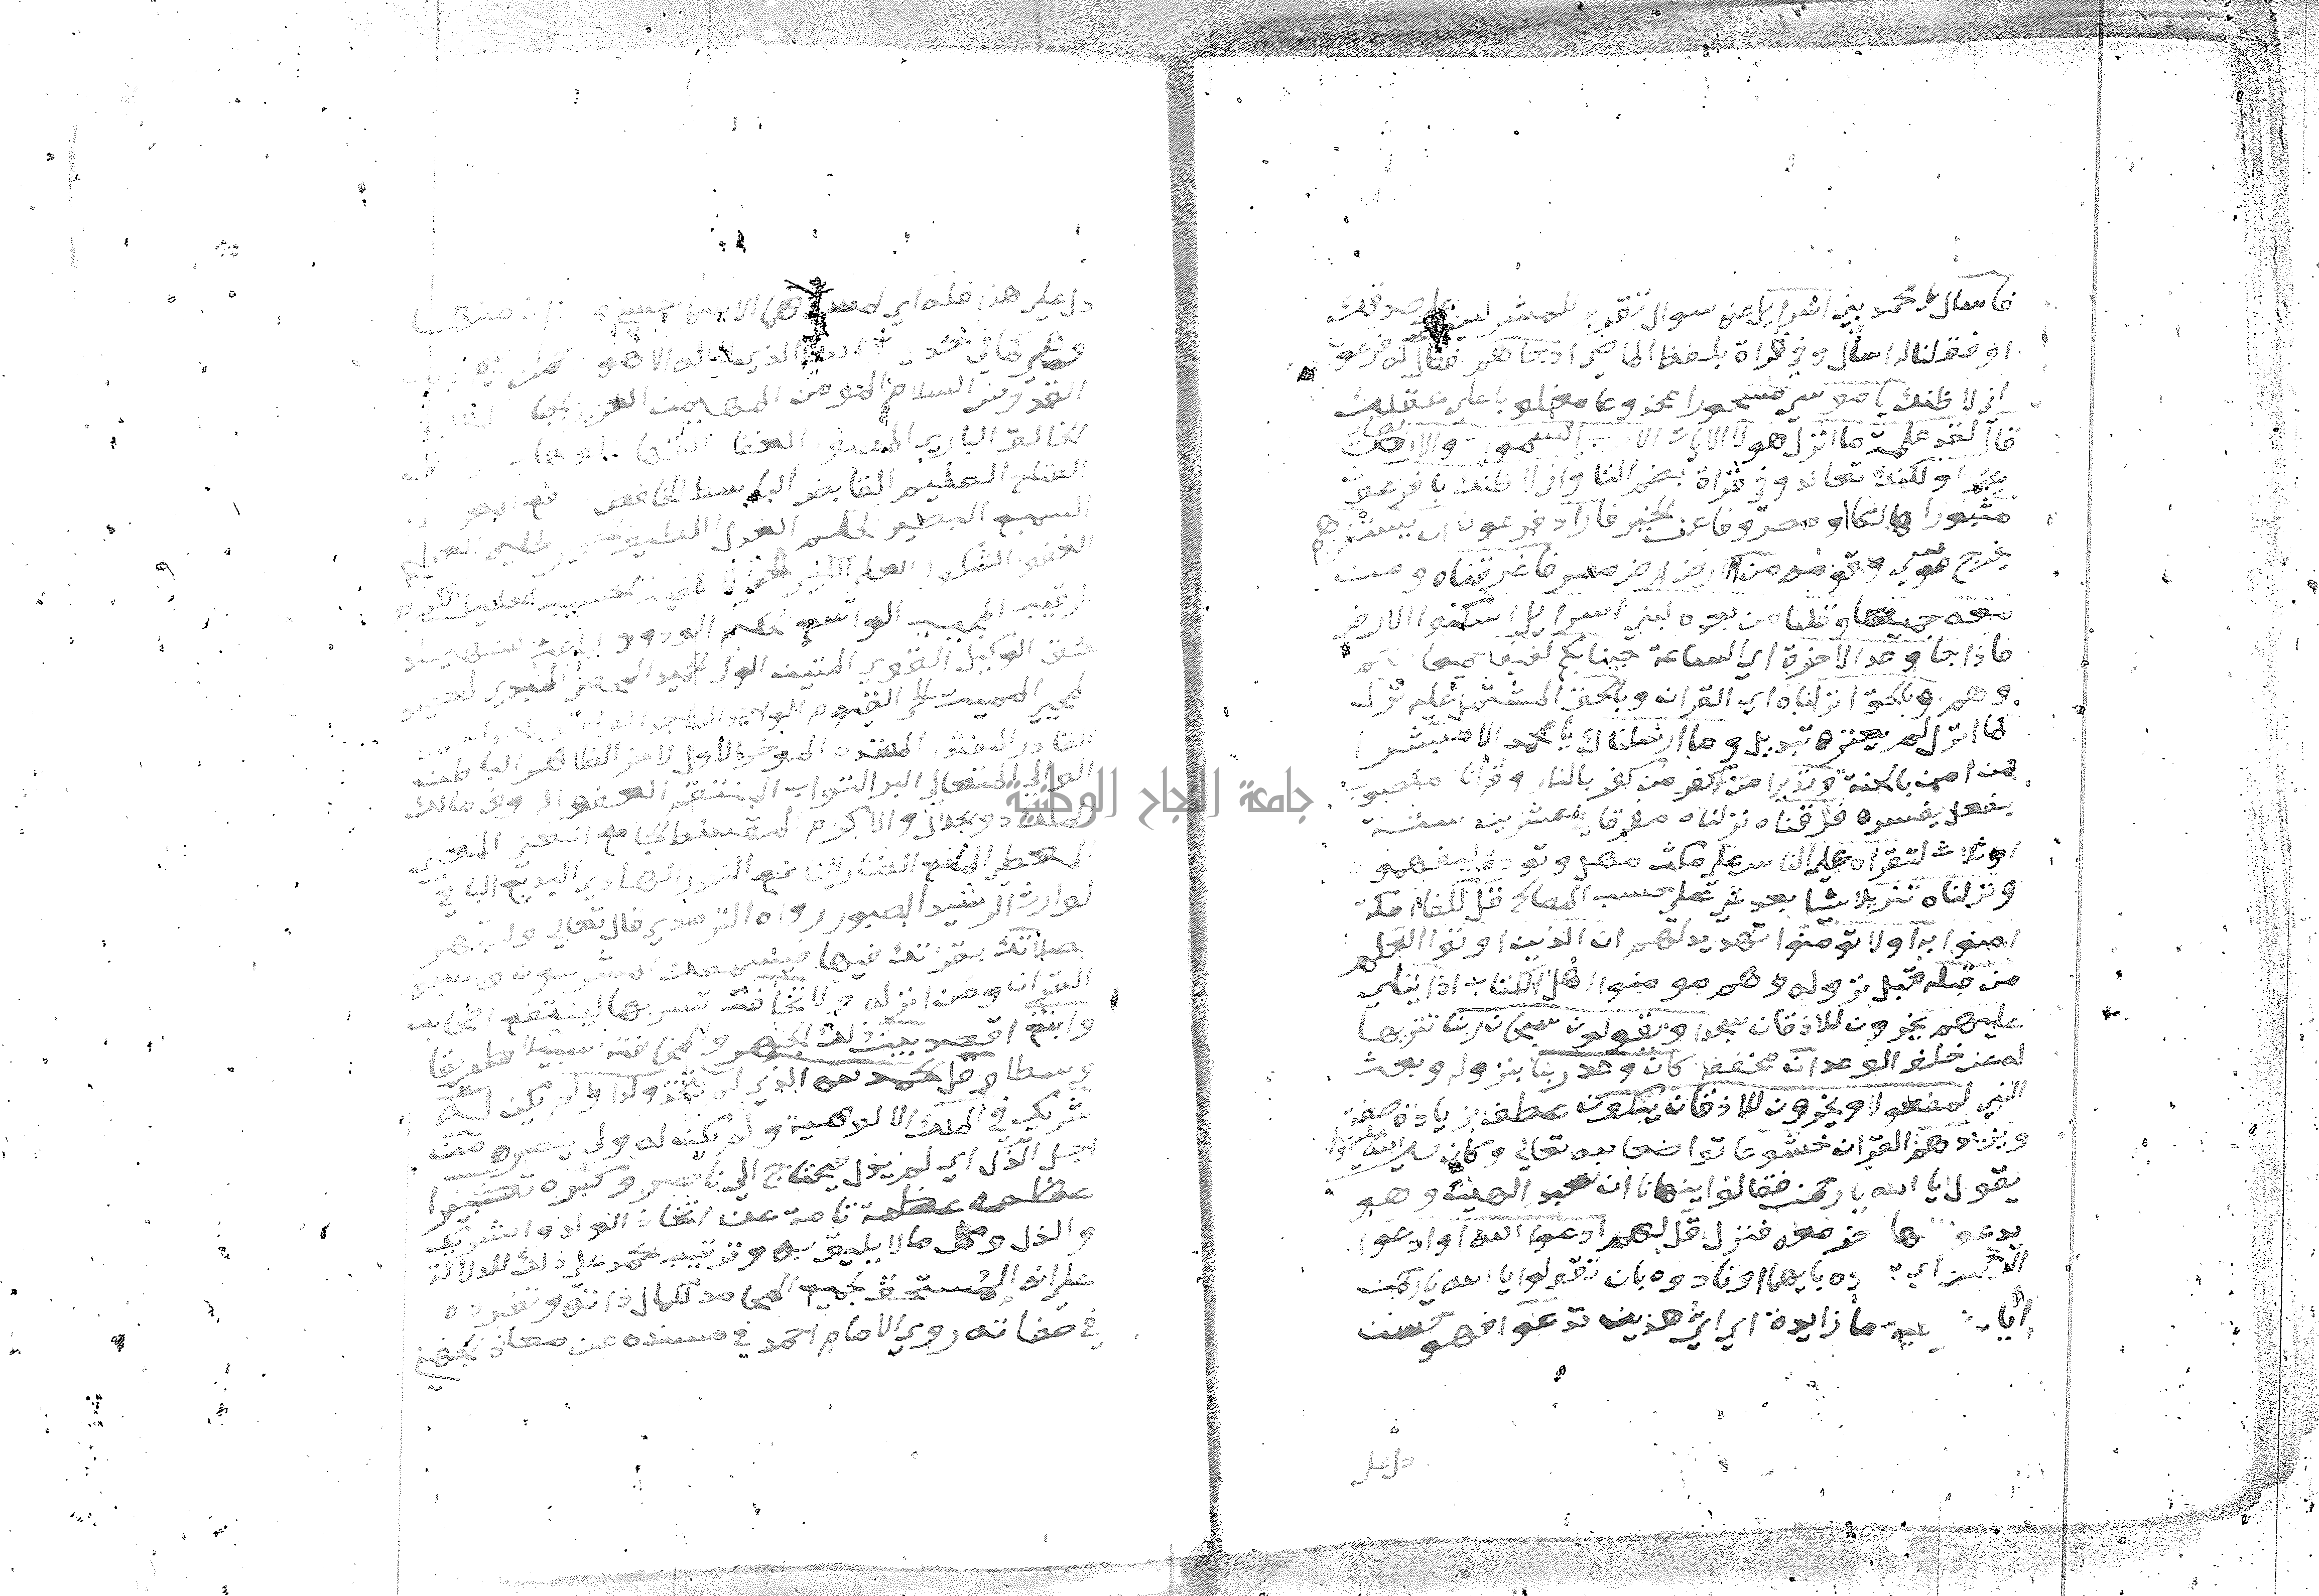 فاسال يا محمد بني اسرايل عنه سوال تقرير للمشركين علي صدقك
او فقلنا له اسال وفي قراة بلفظ الماضي اذ جاهم فقال له فرعون
اني لاظنك يا موسي مسحورا مخدوعا مغلوبا علي عقلك
قال لقد علمت ما انزل هولا الايات الا رب السموات والارض بصاير
عبرا ولكنك تعاند وفي قراة بضم التا واني لاظنك يا فرعون
مثبورا هالكا او مصروفا عن الخير فاراد فرعون ان يستفزهم
يخرج موسي وقومه من الارض ارض مصر فاغرقناه ومن
معه جميعا وقلنا من بعده لبني اسرايل اسكنوا الارض
فاذا جا وعد الاخرة اي الساعة جينا بكم لفيفا جميعا انتم
وهم وبالحق انزلناه اي القران وبالحق المشتمل عليه نزل
كما انزل لم يعتره تبديل وما ارسلناك يا محمد الا مبشرا
من امن بالجنة ونذيرا من كفر بالنار وقرانا منصوب
بفعل يفسره فرقناه نزلناه مفرقا في عشرين سنة
او وثلاث لتقراه علي الناس علي مكث مهل وتودة ليفهموه
ونزلناه تنزيلا شيا بعد شي علي حسب المصالح قل لكفار مكة
امنوا به او لا تومنوا تهديد لهم ان الذين اوتوا العلم
من قبله قبل نزوله وهم مومنوا اهل الكتاب اذا يتلي
عليهم يخرون للاذقان سجدا ويقولون سبحان ربنا تنزيها
له عن خلف الوعد ان مخففة كان وعد ربنا بنزوله وبعث
النبي لمفعولا ويخرون للاذقان يبكون عطف بزيادة صفة
ويزيدهم القران خشوعا تواضعا لله تعالي وكان صلي الله عليه وسلم
يقول يا الله يا رحمن فقالوا ينهانا ان نعبد الهين وهو
يدعو الها اخر معه فنزل قل لهم ادعوا الله او ادعوا
الرحمن اي سموه بايهما او نادوه بان تقولوا يا الله يا رحمن
ايا شرطية ما زايدة اي اي هذين تدعوا فهو حسن
دل علي
دل علي هذا فله اي لمسماهما الاسما الحسني وهذان منها
وهي كما في الحديث الله الذي لا اله الا هو الرحمن الرحيم
القدوس السلام المومن المهيمن العزيز الجبار المتكبر
الخالق الباري المصور الغفار القهار الوهاب
الفتاح العليم القابض الباسط الخافض الرافع المعز
السميع البصير الحكم العدل اللطيف الخبير الحليم العظيم
الغفور الشكور العلي الكبير الحفيظ المقيت الحسيب الجليل الكريم
الرقيب المجيب الواسع الحكيم الودود المجيد الباعث الشهيد
الحق الوكيل القوي المتين الولي الحميد المحصي المبدي المعيد
المحيي المميت الحي القيوم الواجد الماجد الواحد الاحد الصمد
القادر المقتدر المقدم الموخر الاول الاخر الظاهر الباطن
الوالي المتعالي البر التواب المنتقم العفو الروف مالك
الملك ذو الجلال والاكرام المقسط الجامع الغني المغني
المعطي المانع الضار النافع النور الهادي البديع الباقي
الوارث الرشيد الصبور رواه الترمذي قال تعالي ولا تجهر
بصلاتك بقراتك فيها فيسمعك المشركون ويسبوا
القران ومن انزله ولا تخافت تسر بها لينتفع اصحابك
وابتغ اقصد بين ذلك الجهر والمخافتة سبيلا طريقا
وسطا وقل الحمد لله الذي لم يتخذ ولدا ولم يكن له
شريك في الملك الالوهية ولم يكن له ولي ينصره من
اجل الذل اي لم يذل فيحتاج الي ناصر وكبره تكبيرا
عظمه عظمة تامة عن اتخاذ الولد والشريك
والذل وكل ما لا يليق به وترتيب الحمد علي ذلك للدلالة
علي انه المستحق لجميع المحامد لكمال ذاته وتفرده
في صفاته روي الامام احمد في مسنده عن معاذ الجهني
جامعة النجاح الوطنية